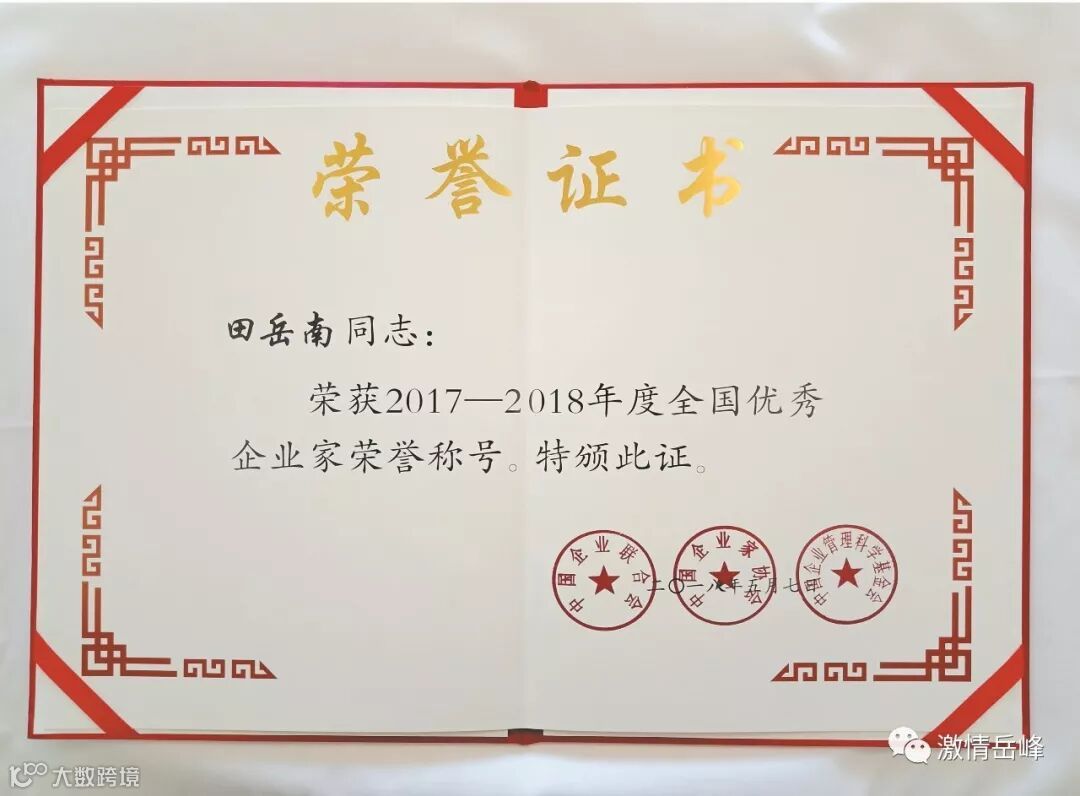 荣誉证书
田岳南同志：
荣获2017—2018年度全国优秀
企业家荣誉称号。特颁此证。
中国企业联合会
中国企业家协会
中国企业管理科学基金会
二〇一八年五月七日
激情岳峰
大数跨境